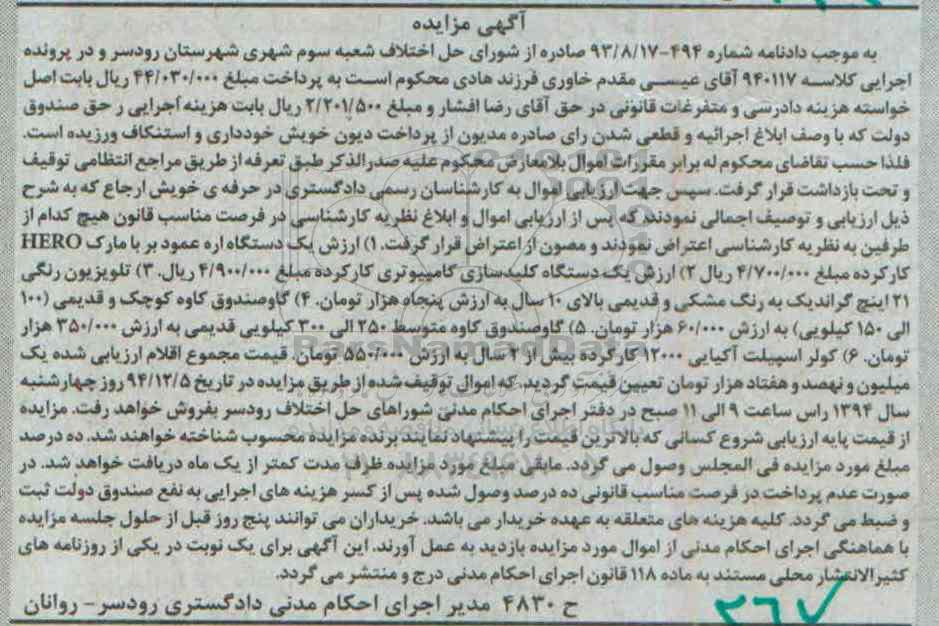 آگهی مزایده
به موجب دادنامه شماره ۴۹۴-۹۳/۸/۱۷ صادره از شورای حل اختلاف شعبه سوم شهری شهرستان رودسر و در پرونده
اجرایی کلاسه ۹۴۰۱۱۷ آقای عیسی مقدم خاوری فرزند هادی محکوم است به پرداخت مبلغ ۴۴/۰۳۰/۰۰۰ ریال بابت اصل
خواسته هزینه دادرسی و متفرغات قانونی در حق آقای رضا افشار و مبلغ ۲/۲۰۱/۵۰۰ ریال بابت هزینه اجرایی ر حق صندوق
دولت که با وصف ابلاغ اجرائیه و قطعی شدن رای صادره مدیون از پرداخت دیون خویش خودداری و استنکاف ورزیده است.
فلذا حسب تقاضای محکوم له برابر مقررات اموال بلامعارض محکوم علیه صدرالذکر طبق تعرفه از طریق مراجع انتظامی توقیف
و تحت بازداشت قرار گرفت. سپس جهت ارزیابی اموال به کارشناسان رسمی دادگستری در حرفه ی خویش ارجاع که به شرح
ذیل ارزیابی و توصیف اجمالی نمودند که پس از ارزیابی اموال و ابلاغ نظریه کارشناسی در فرصت مناسب قانون هیچ کدام از
طرفین به نظریه کارشناسی اعتراض نمودند و مصون از اعتراض قرار گرفت. ۱) ارزش یک دستگاه اره عمود بر با مارک HERO
کارکرده مبلغ ۴/۷۰۰/۰۰۰ ریال ۲) ارزش یک دستگاه کلیدسازی کامپیوتری کارکرده مبلغ ۴/۹۰۰/۰۰۰ ریال. ۳) تلویزیون رنگی
۲۱ اینچ گراندیک به رنگ مشکی و قدیمی بالای ۱۰ سال به ارزش پنجاه هزار تومان. ۴) گاوصندوق کاوه کوچک و قدیمی (۱۰۰
الی ۱۵۰ کیلویی) به ارزش ۶۰/۰۰۰ هزار تومان. ۵) گاوصندوق کاوه متوسط ۲۵۰ الی ۳۰۰ کیلویی قدیمی به ارزش ۳۵۰/۰۰۰ هزار
تومان. ۶) کولر اسپیلت آکیایی ۱۲۰۰۰ کارکرده بیش از ۲ سال به ارزش ۵۵۰/۰۰۰ تومان. قیمت مجموع اقلام ارزیابی شده یک
میلیون و نهصد و هفتاد هزار تومان تعیین قیمت گردید. که اموال توقیف شده از طریق مزایده در تاریخ ۹۴/۱۲/۵ روز چهارشنبه
سال ۱۳۹۴ راس ساعت ۹ الی ۱۱ صبح در دفتر اجرای احکام مدنی شوراهای حل اختلاف رودسر بفروش خواهد رفت. مزایده
از قیمت پایه ارزیابی شروع کسانی که بالاترین قیمت را پیشنهاد نمایند برنده مزایده محسوب شناخته خواهند شد. ده درصد
مبلغ مورد مزایده فی المجلس وصول می گردد. مابقی مبلغ مورد مزایده ظرف مدت کمتر از یک ماه دریافت خواهد شد. در
صورت عدم پرداخت در فرصت مناسب قانونی ده درصد وصول شده پس از کسر هزینه های اجرایی به نفع صندوق دولت ثبت
و ضبط می گردد. کلیه هزینه های متعلقه به عهده خریدار می باشد. خریداران می توانند پنج روز قبل از حلول جلسه مزایده
با هماهنگی اجرای احکام مدنی از اموال مورد مزایده بازدید به عمل آورند. این آگهی برای یک نوبت در یکی از روزنامه های
کثیرالانتشار محلی مستند به ماده ۱۱۸ قانون اجرای احکام مدنی درج و منتشر می گردد.
ح ۴۸۳۰ مدیر اجرای احکام مدنی دادگستری رودسر- روانان
۲۶۷
ParsNamadData